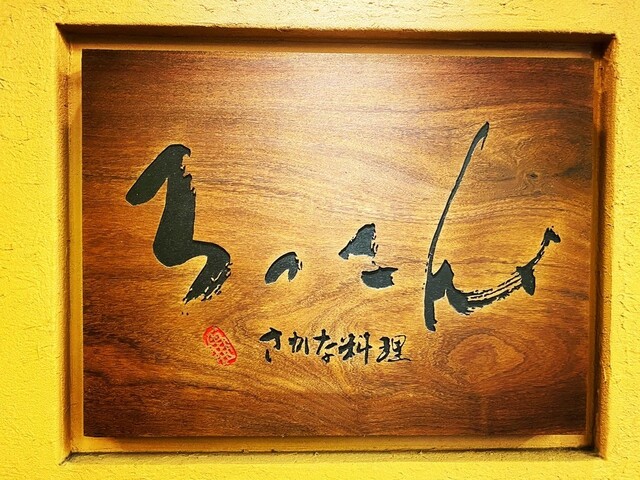 ろっこん
さかな料理